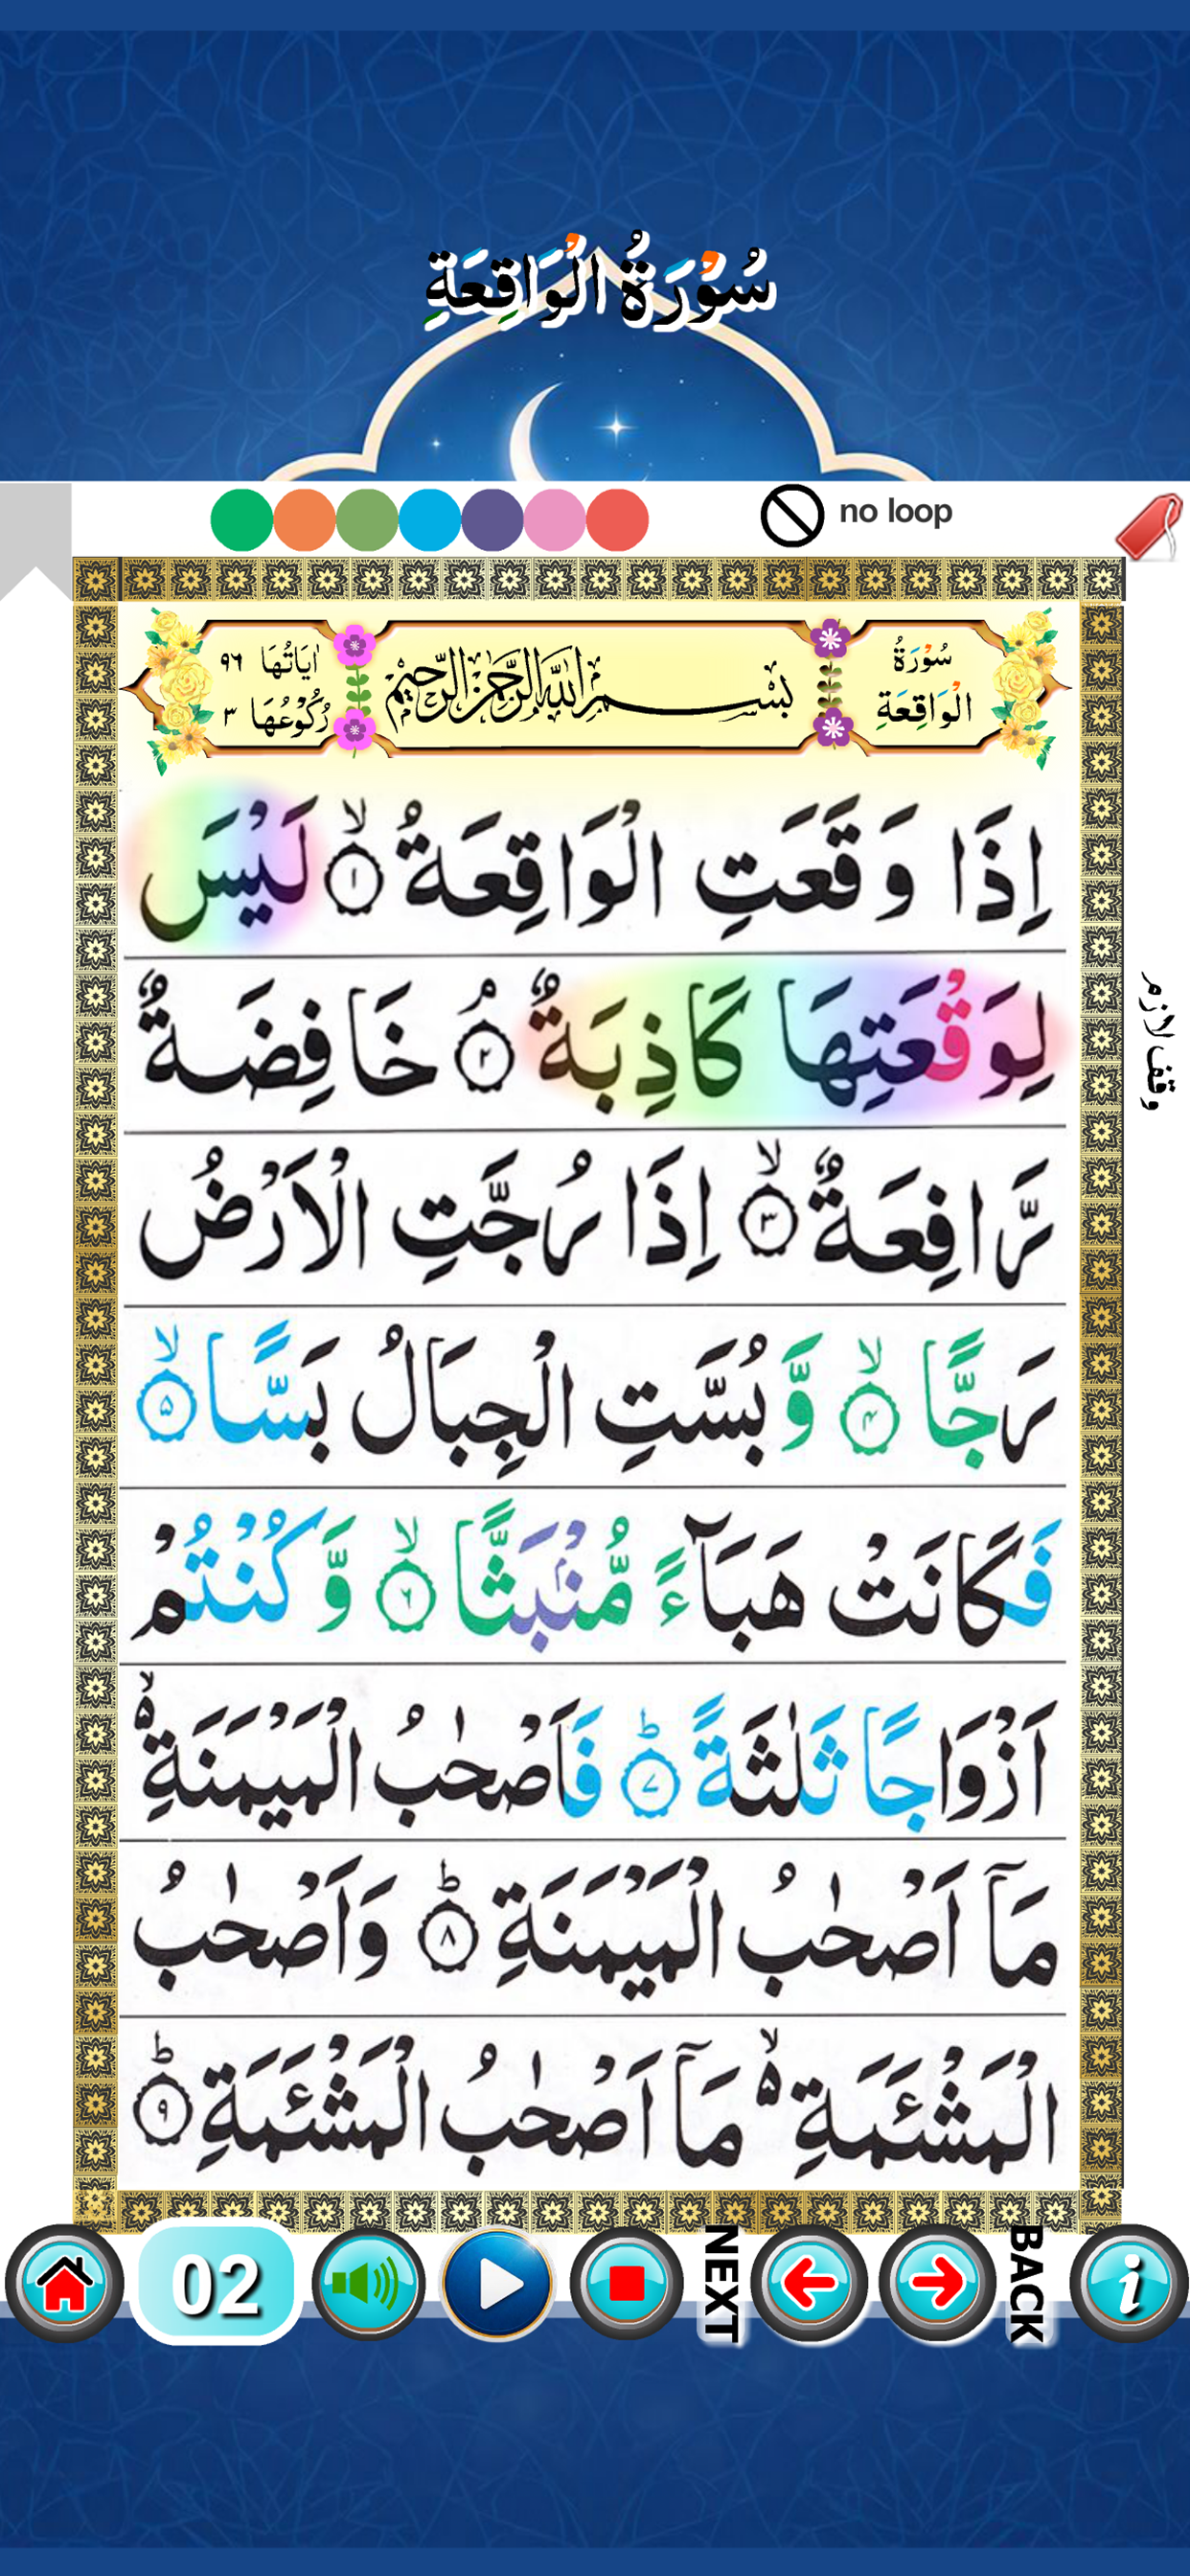 سُوْرَةُ الْوَاقِعَةِ
no loop
سُوْرَةُ الْوَاقِعَةِ
بِسْمِ اللّٰهِ الرَّحْمٰنِ الرَّحِيْمِ
اٰيَاتُهَا ٩٦
رُكُوْعُهَا ٣
اِذَا وَقَعَتِ الْوَاقِعَةُ ۙ۝١ لَيْسَ
لِوَقْعَتِهَا كَاذِبَةٌ ۘ۝٢ خَافِضَةٌ
وقف لازم
رَّافِعَةٌ ۙ۝٣ اِذَا رُجَّتِ الْاَرْضُ
رَجًّا ۙ۝٤ وَّبُسَّتِ الْجِبَالُ بَسًّا ۙ۝٥
فَكَانَتْ هَبَآءً مُّنْۢبَثًّا ۙ۝٦ وَّكُنْتُمْ
اَزْوَاجًا ثَلٰثَةً ؕ۝٧ فَاَصْحٰبُ الْمَيْمَنَةِ ۙ۬
مَاۤ اَصْحٰبُ الْمَيْمَنَةِ ؕ۝٨ وَاَصْحٰبُ
الْمَشْـَٔمَةِ ۙ۬ مَاۤ اَصْحٰبُ الْمَشْـَٔمَةِ ؕ۝٩
02
NEXT
BACK
i